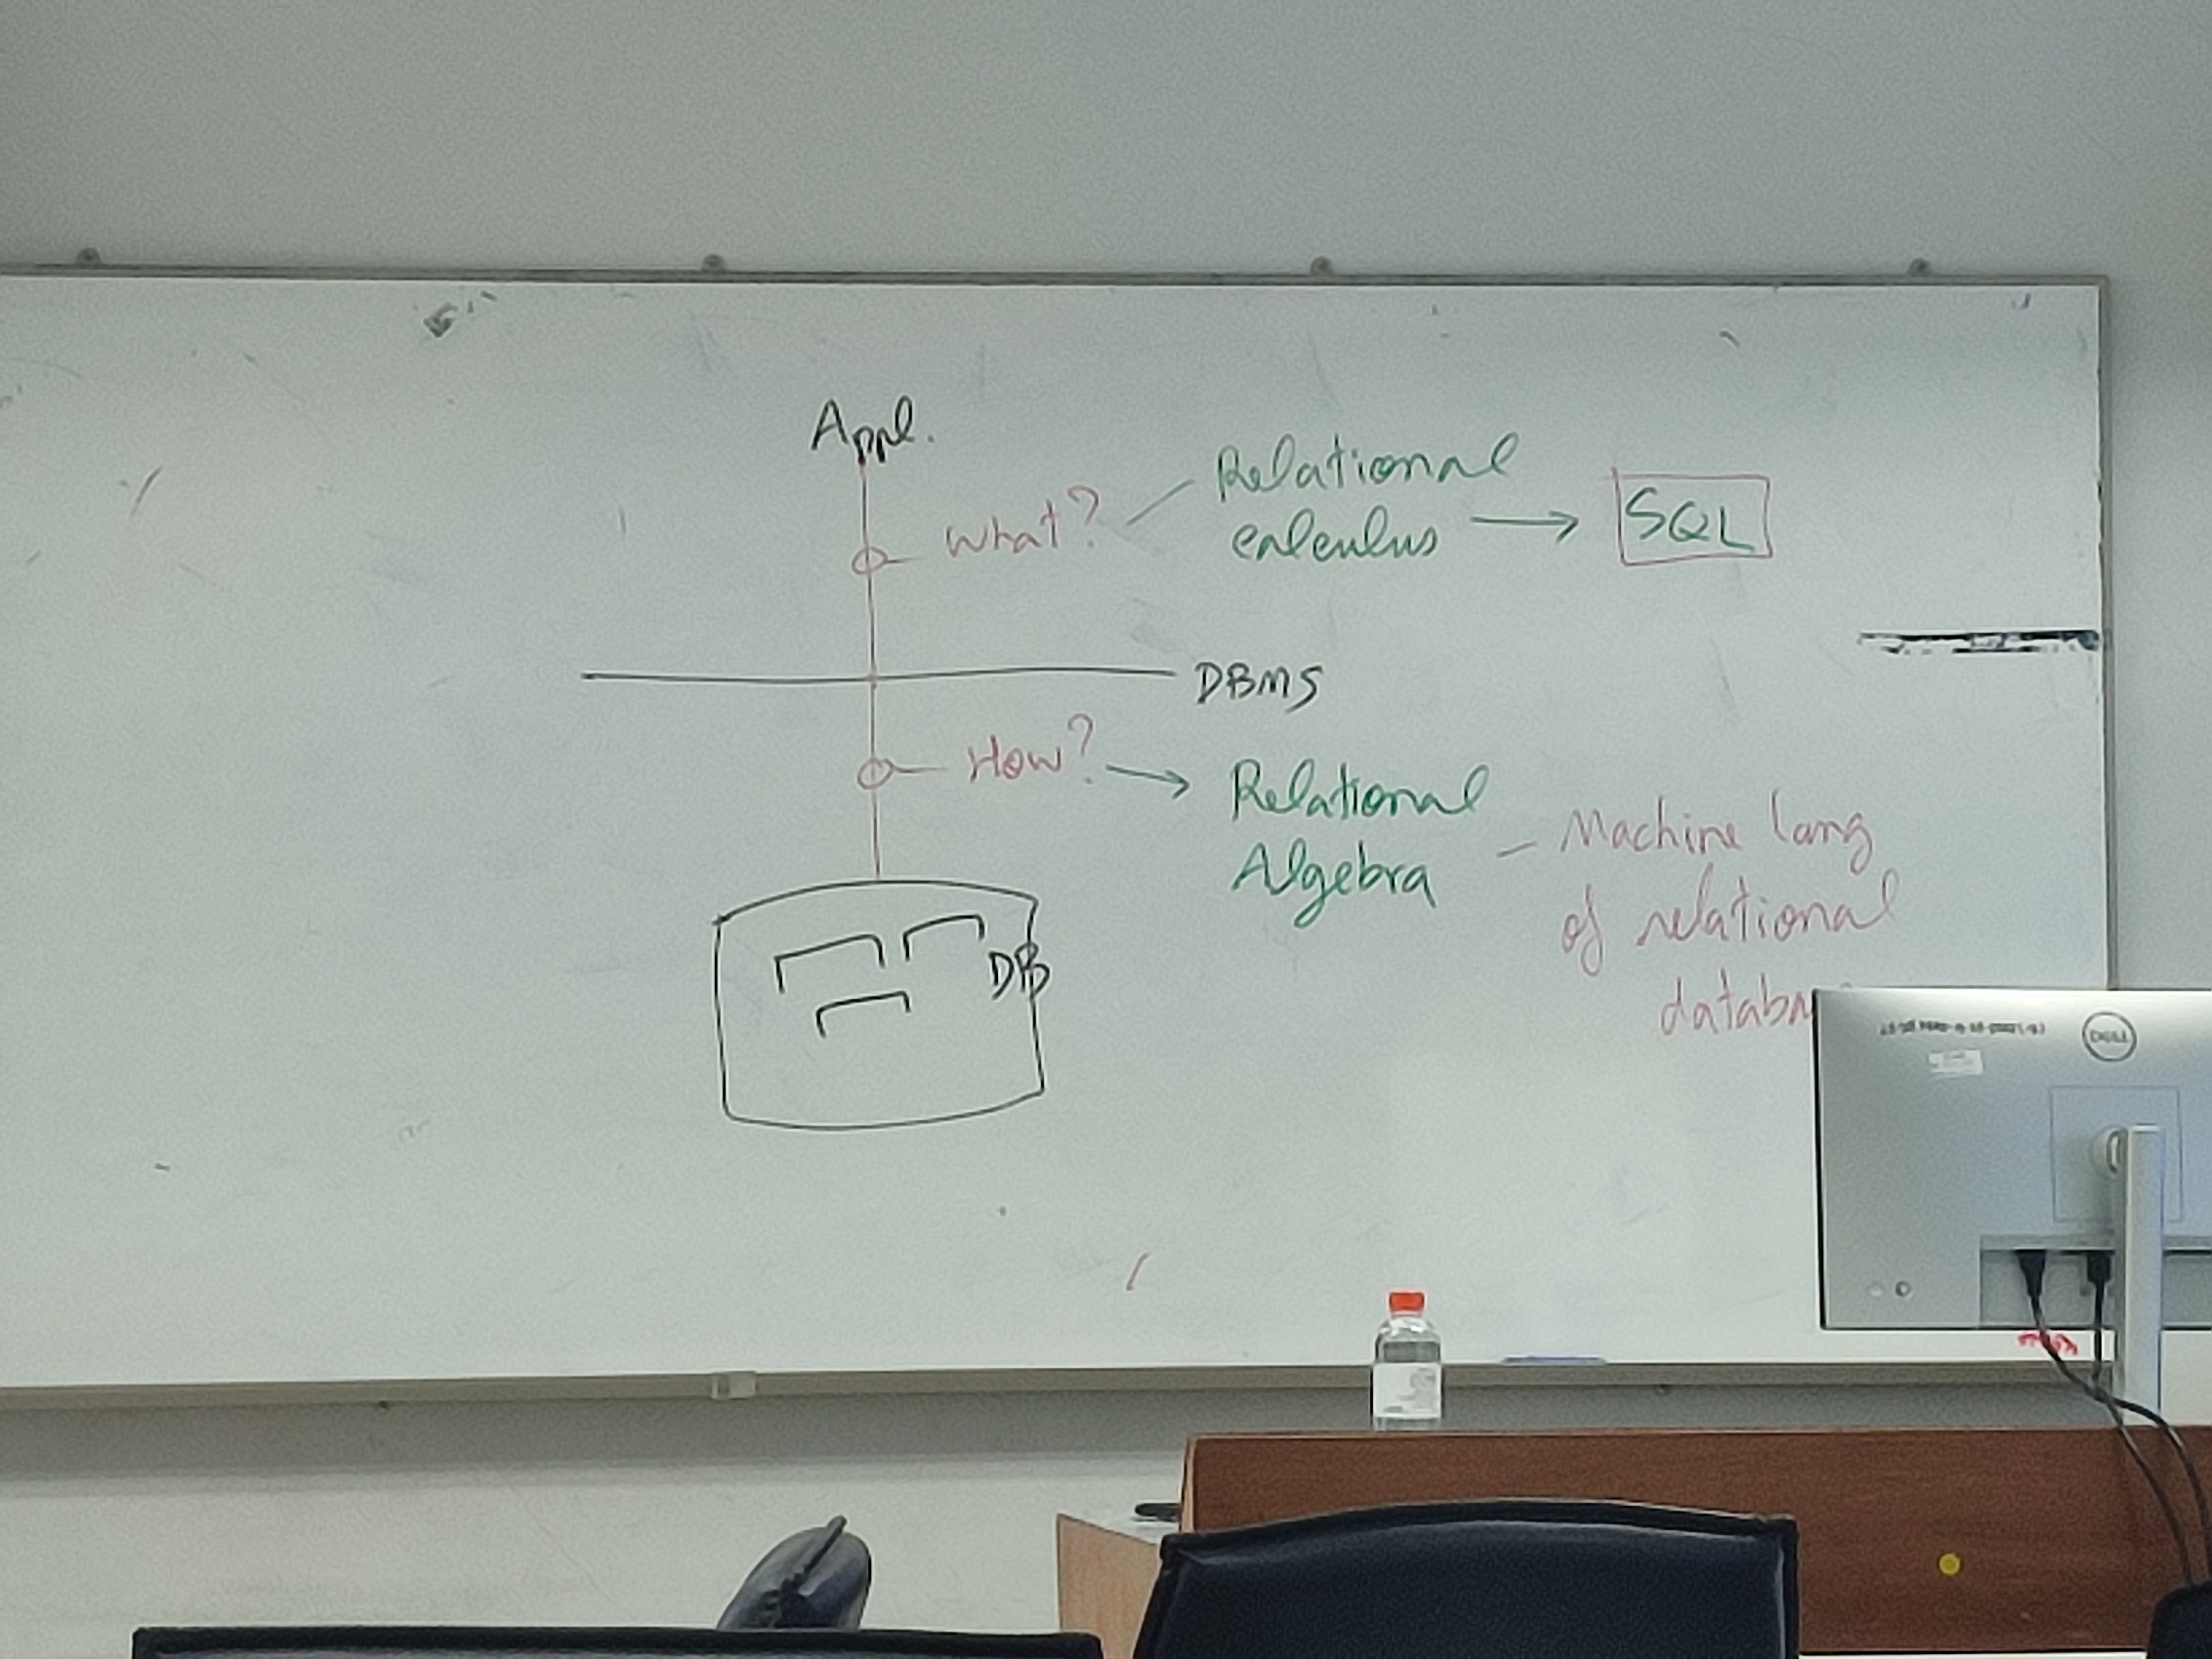 Appl.
What?
Relational
calculus
SQL
DBMS
How?
Relational
Algebra
Machine lang
of relational
DB
DELL